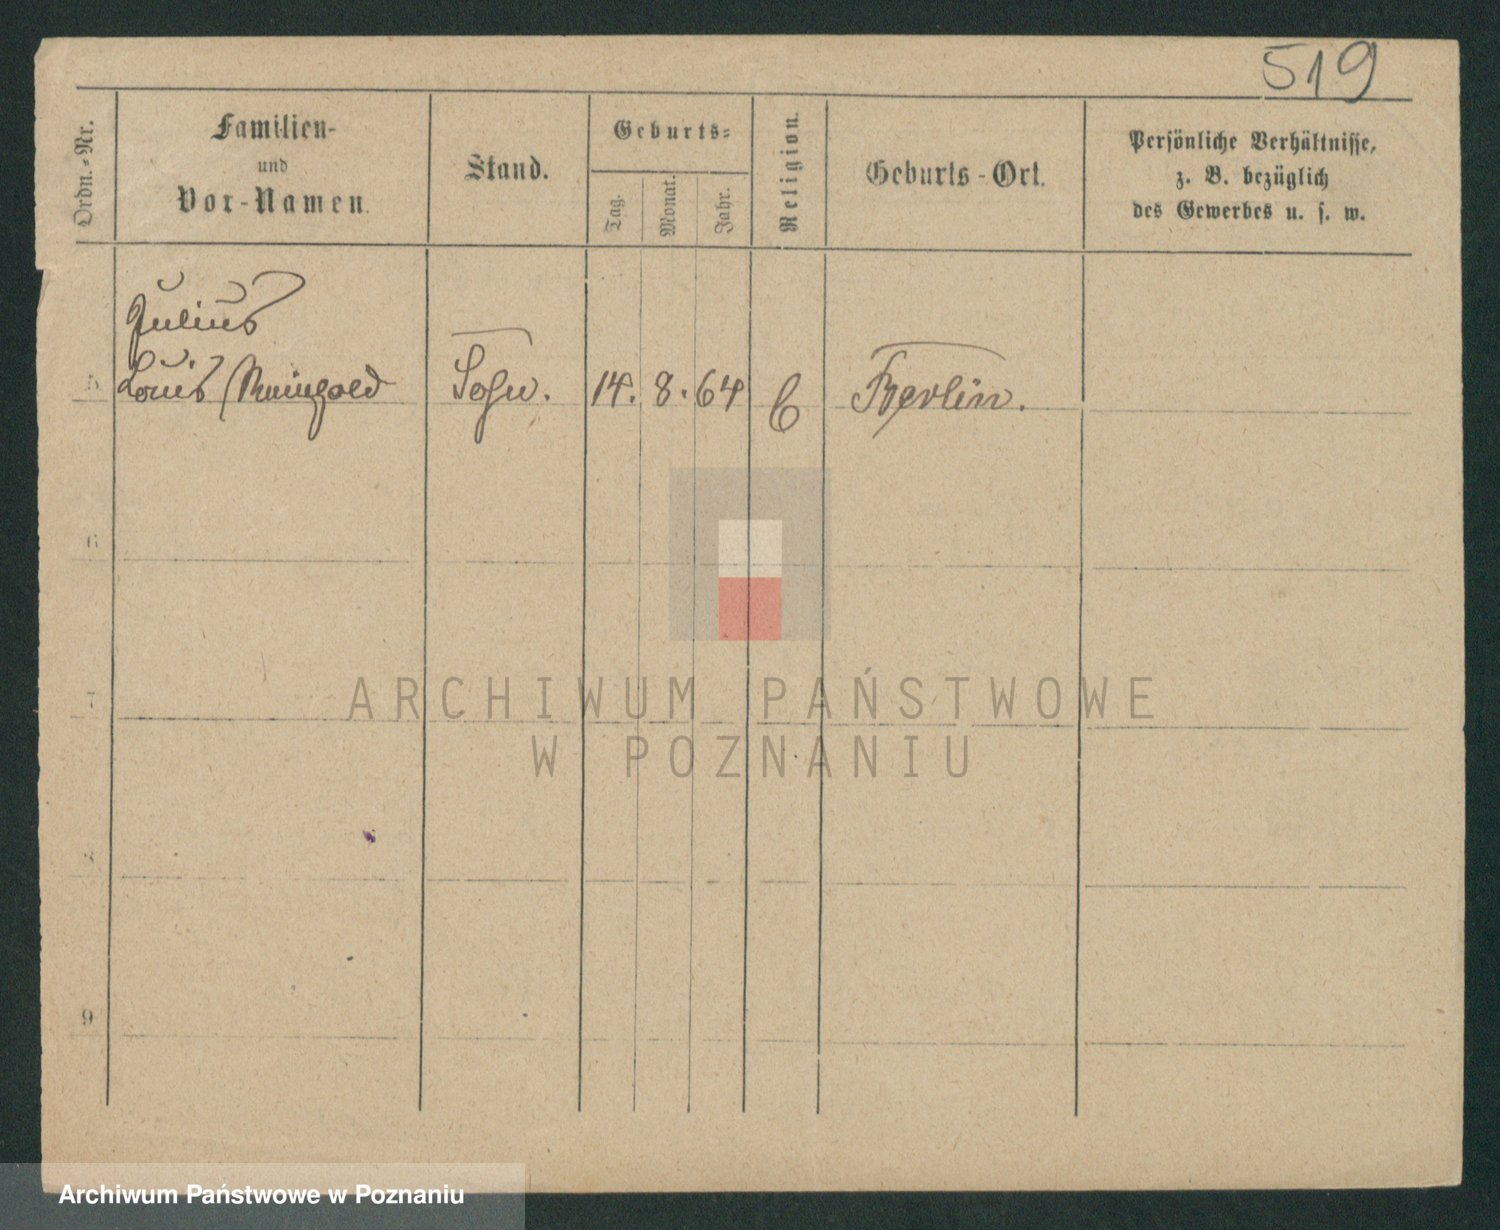 519
Ordn.-Nr.
Familien-
und
Vor-Namen.
Stand.
Geburts-
Tag.
Monat.
Jahr.
Religion.
Geburts-Ort.
Persönliche Verhältnisse,
z. B. bezüglich
des Gewerbes u. s. w.
Julius
5 Louis Reingold Sohn. 14. 8. 64 C Berlin.
6
7
8
9
ARCHIWUM PAŃSTWOWE
W POZNANIU
Archiwum Państwowe w Poznaniu